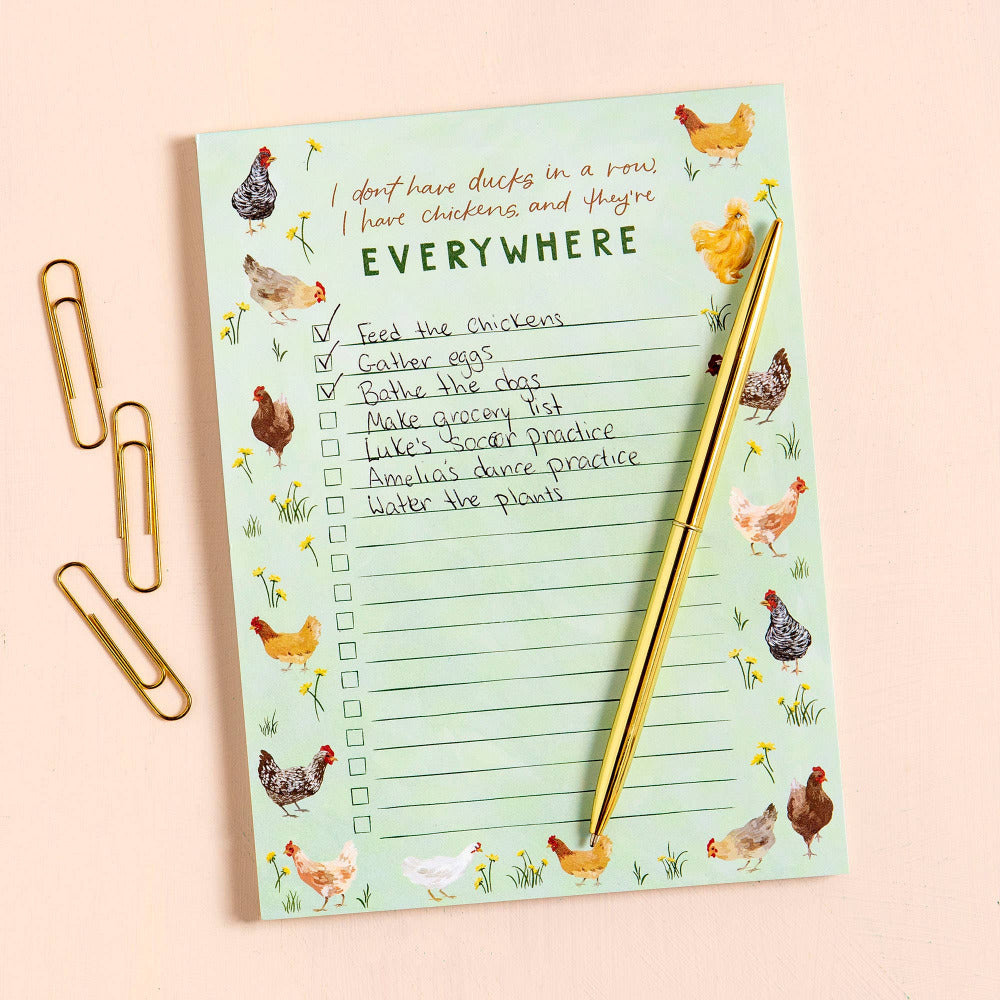 I don't have ducks in a row,
I have chickens, and they're
EVERYWHERE
Feed the chickens
Gather eggs
Bathe the dogs
Make grocery list
Luke's soccer practice
Amelia's dance practice
Water the plants